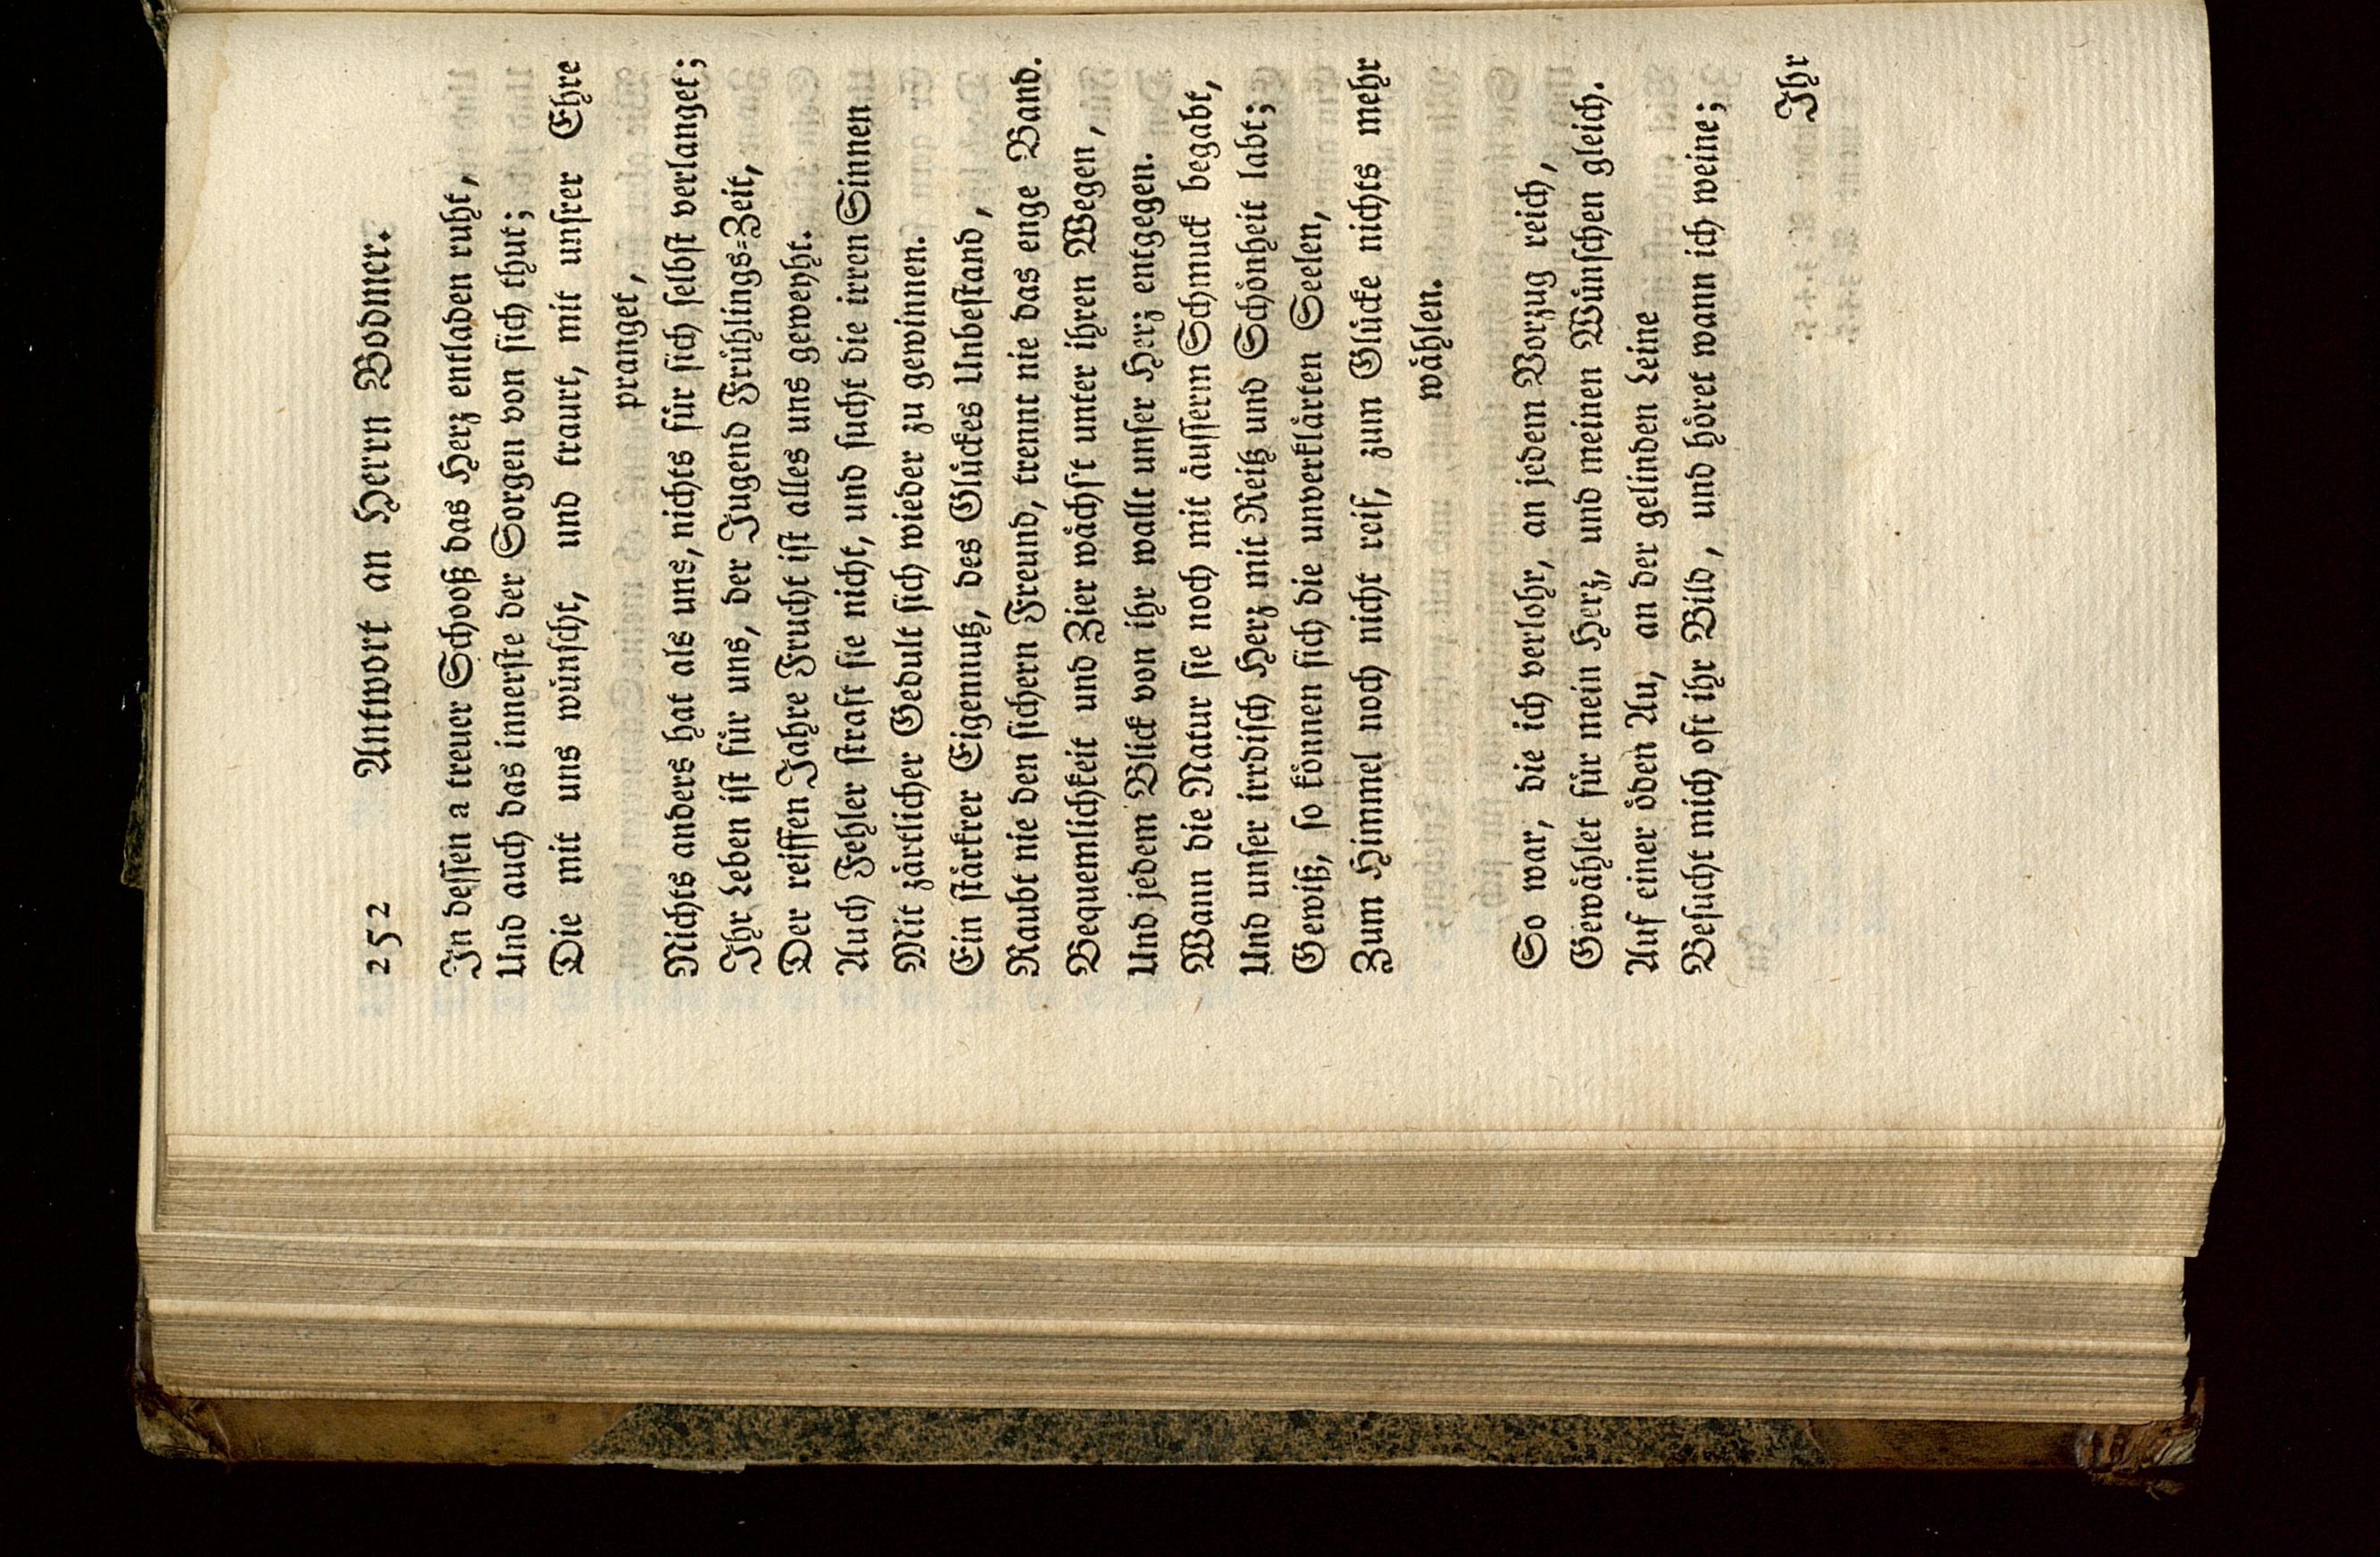 252 Antwort an Herrn Bodmer.
In deſſen a treuer Schooß das Herz entladen ruht,
Und auch das innerſte der Sorgen von ſich thut;
Die mit uns wuͤnſcht, und traurt, mit unſrer Ehre
pranget,
Nichts anders hat als uns, nichts fuͤr ſich ſelbſt verlanget;
Ihr Leben iſt fuͤr uns, der Jugend Fruͤhlings⸗Zeit,
Der reiffen Jahre Frucht iſt alles uns geweyht.
Auch Fehler ſtraft ſie nicht, und ſucht die irren Sinnen
Mit zaͤrtlicher Gedult ſich wieder zu gewinnen.
Ein ſtaͤrkrer Eigennutz, des Gluͤckes Unbeſtand,
Raubt nie den ſichern Freund, trennt nie das enge Band.
Bequemlichkeit und Zier waͤchſt unter ihren Wegen,
Und jedem Blick von ihr wallt unſer Herz entgegen.
Wann die Natur ſie noch mit aͤuſſerm Schmuck begabt,
Und unſer irrdiſch Herz mit Reitz und Schoͤnheit labt;
Gewiß, ſo koͤnnen ſich die unverklaͤrten Seelen,
Zum Himmel noch nicht reif, zum Gluͤcke nichts mehr
waͤhlen.
So war, die ich verlohr, an jedem Vorzug reich,
Gewaͤhlet fuͤr mein Herz, und meinen Wuͤnſchen gleich.
Auf einer oͤden Au, an der gelinden Leine
Beſucht mich oft ihr Bild, und hoͤret wann ich weine;
Ihr